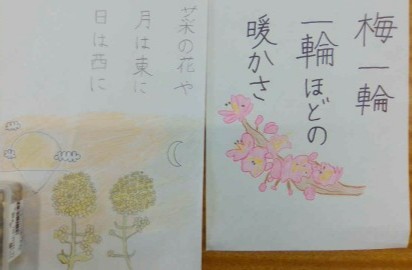 梅一輪
一輪ほどの
暖かさ
菜の花や
月は東に
日は西に